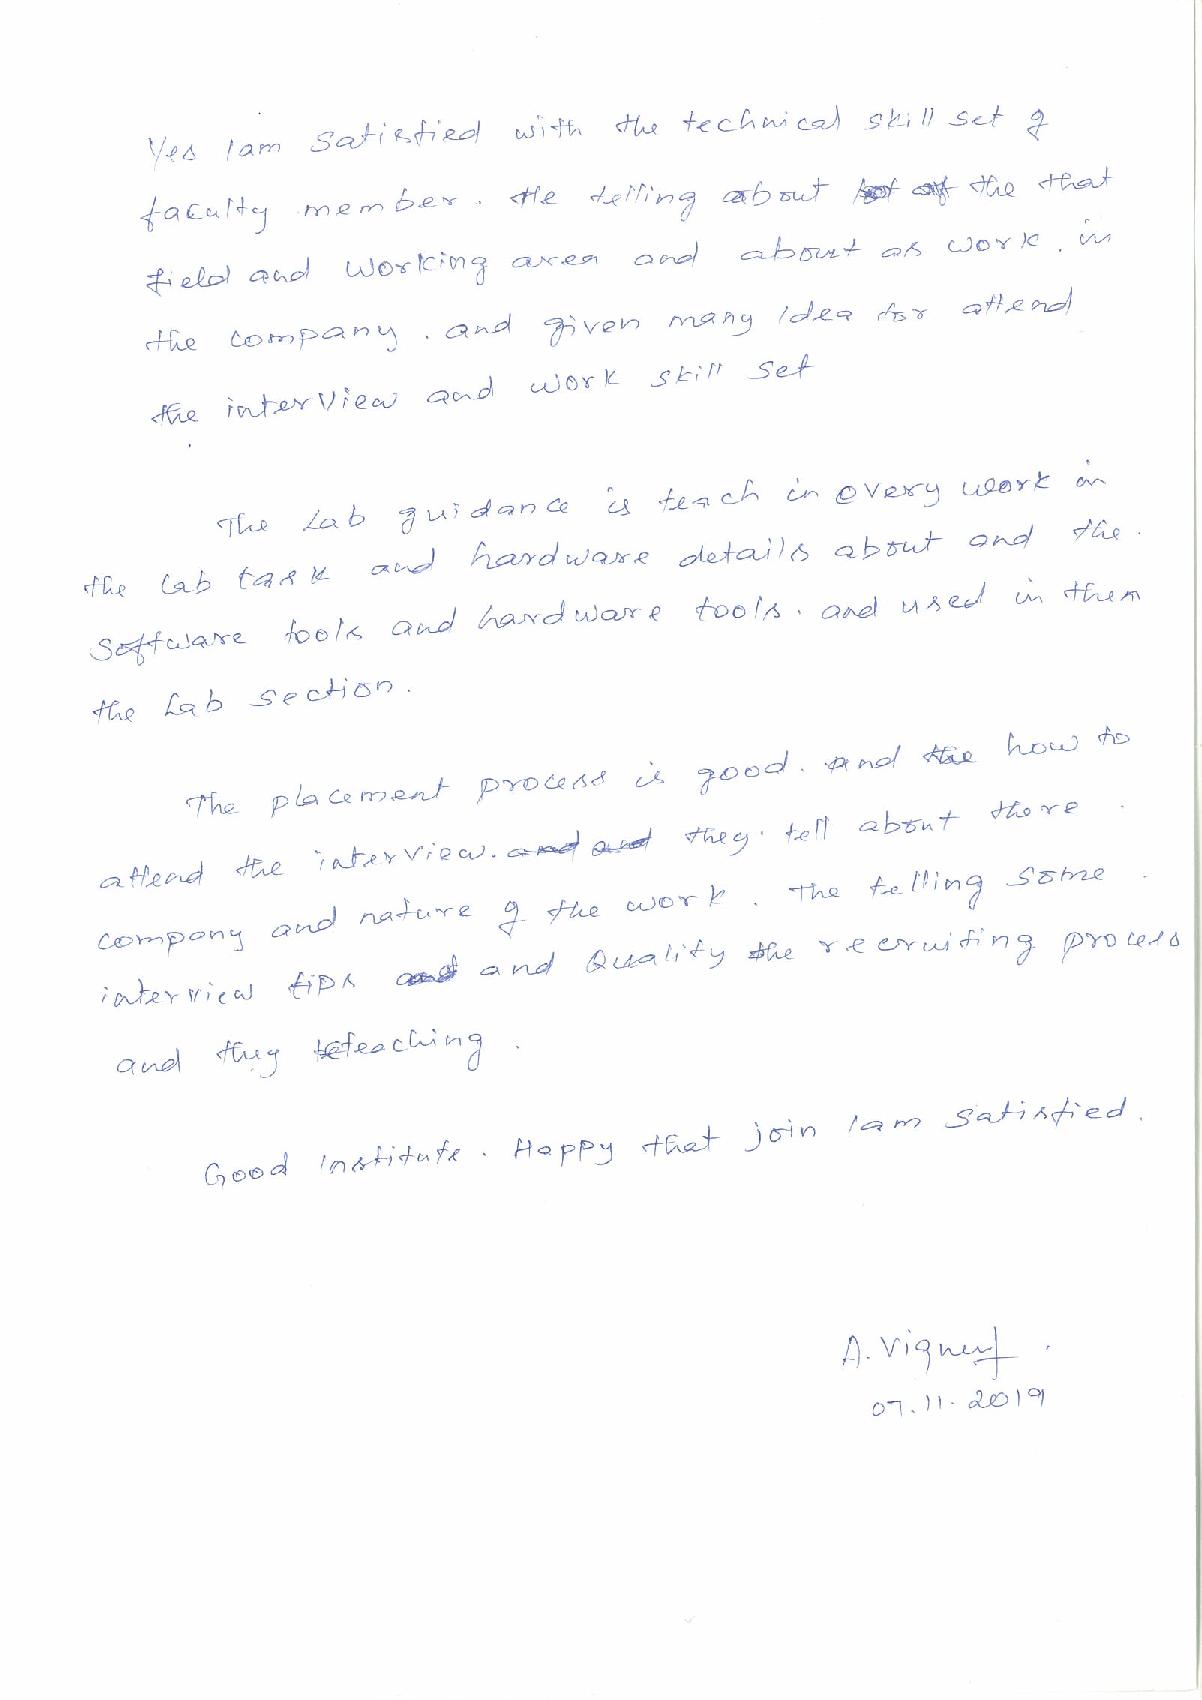 Yes I am satisfied with the technical skill set of
faculty member. He telling about the that
field and working area and about as work. in
the company. and given many idea for attend
the interview and work skill set
The Lab guidance is teach in every work in
the Lab task and hardware details about and the.
software tools and hardware tools. and used in them
the Lab section.
The placement process is good. and the how to
attend the interview. and and they tell about there
company and nature of the work. The telling some
interview tips and Quality the recruiting process
and they teaching.
Good Institute. Happy that join I am satisfied.
A. Vignesh
07.11.2019